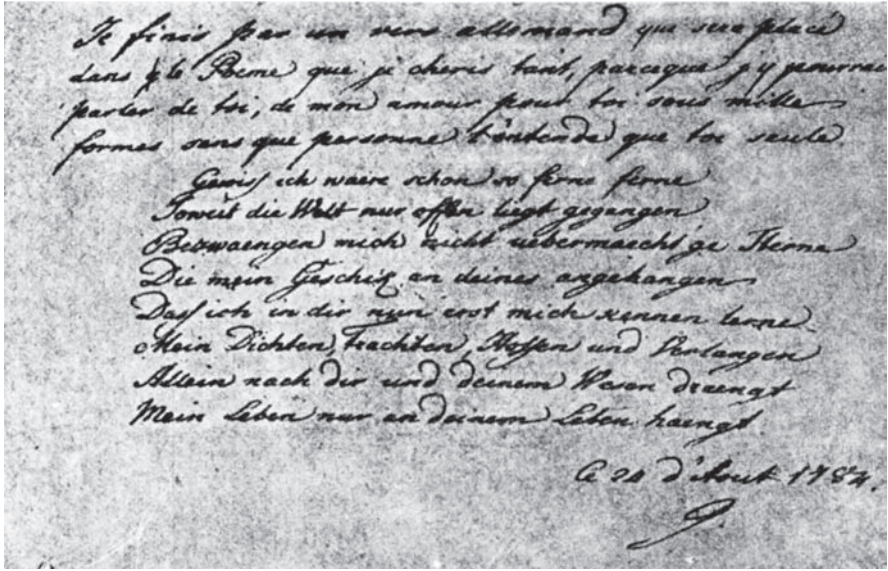 Je finis par un vers allemand qui sera placé
dans le Poeme que je cheris tant, parceque j'y pourrai
parler de toi, de mon amour pour toi sous mille
formes sans que personne l'entende que toi seule.
Gewiss ich waere schon so ferne ferne
Soweit die Welt nur offen liegt gegangen
Bezwaengen mich nicht uebermaecht'ge Sterne
Die mein Geschik an deines angehangen
Dass ich in dir nun erst mich kennen lerne.
Mein Dichten, Trachten, Hoffen und Verlangen
Allein nach dir und deinem Wesen draengt
Mein Leben nur an deinem Leben haengt.
Ce 24 d'Aout 1784.
G.